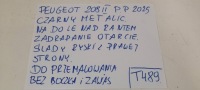 PEUGEOT 208 II P.P 2025
CZARNY METALIC
NA DOLE NAD RANTEM
ZADRAPANIE OTARCIE,
ŚLADY RYSKI Z PRAWEJ
STRONY.
DO PRZEMALOWANIA
BEZ BOCZKA I ZAWIAS
T489